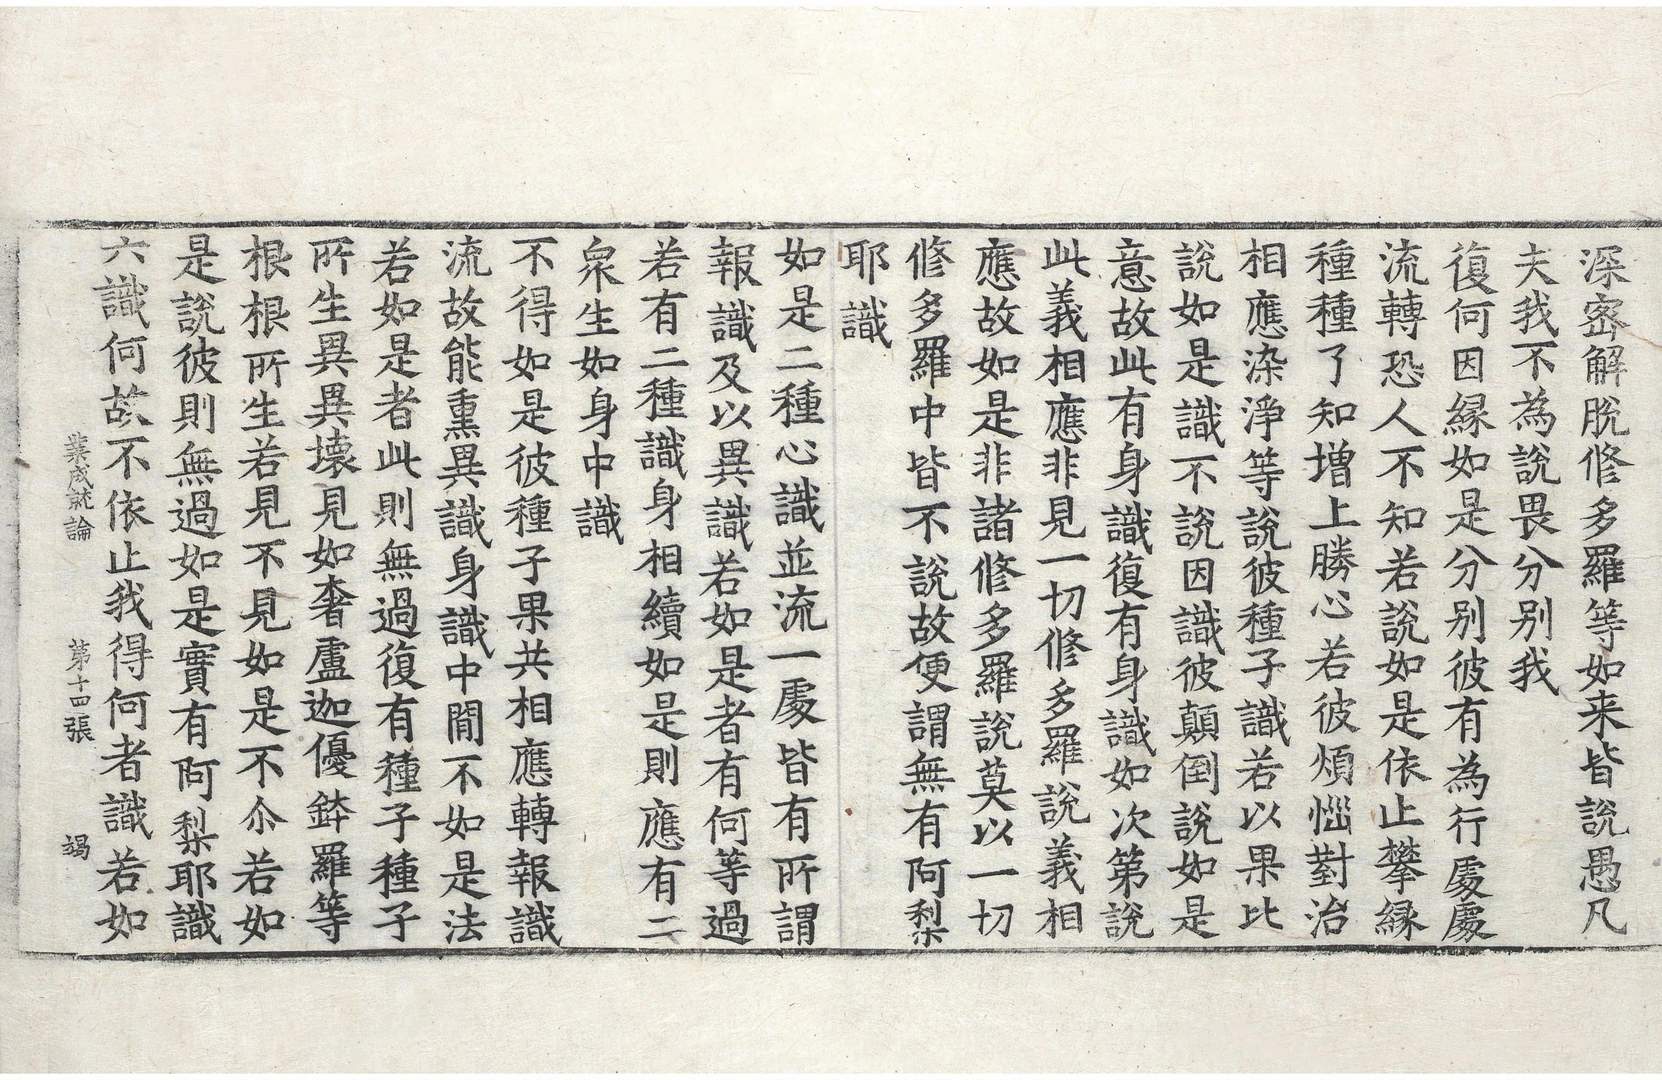 深密解脫修多羅等如来皆說愚凡
夫我不為說畏分別我
復何因縁如是分別彼有為行處處
流轉恐人不知若說如是依止攀縁
種種了知增上勝心若彼煩惱對治
相應染淨等說彼種子識若以果比
說如是識不說因識彼顛倒說如是
意故此有身識復有身識如次第說
此義相應非見一切修多羅說義相
應故如是非諸修多羅說莫以一切
修多羅中皆不說故便謂無有阿梨
耶識
如是二種心識並流一處皆有所謂
報識及以異識若如是者有何等過
若有二種識身相續如是則應有二
衆生如身中識
不得如是彼種子果共相應轉報識
流故能熏異識身識中間不如是法
若如是者此則無過復有種子種子
所生異異壞見如奢盧迦優鉢羅等
根根所生若見不見如是不尒若如
是說彼則無過如是實有阿梨耶識
六識何故不依止我得何者識若如
業成就論 第十四張 竭